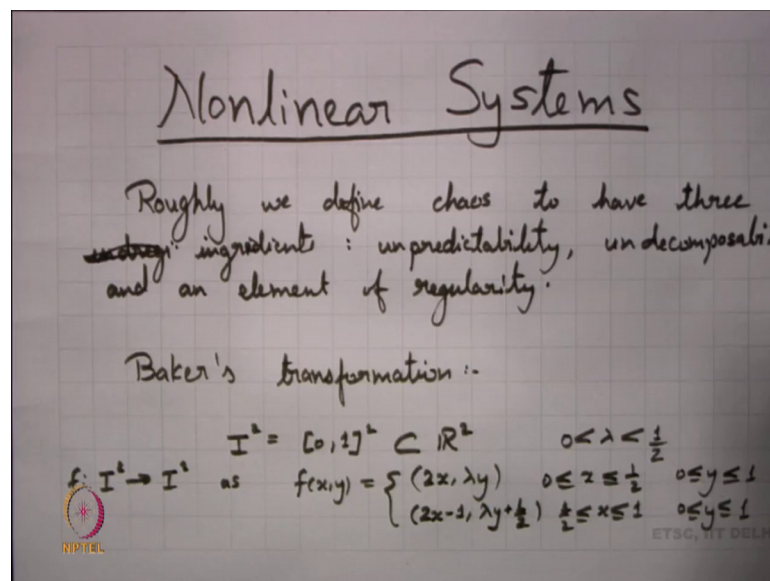 Nonlinear Systems
Roughly we define chaos to have three
ingredient : unpredictability, undecomposabi
and an element of regularity.
Baker's transformation :-
I² = [0,1]² ⊂ ℝ² 0 < λ < 1/2
f: I² → I² as f(x,y) = { (2x, λy) 0 ≤ x ≤ 1/2 0 ≤ y ≤ 1
(2x-1, λy+1/2) 1/2 ≤ x ≤ 1 0 ≤ y ≤ 1
NPTEL
ETSC, IIT DELH